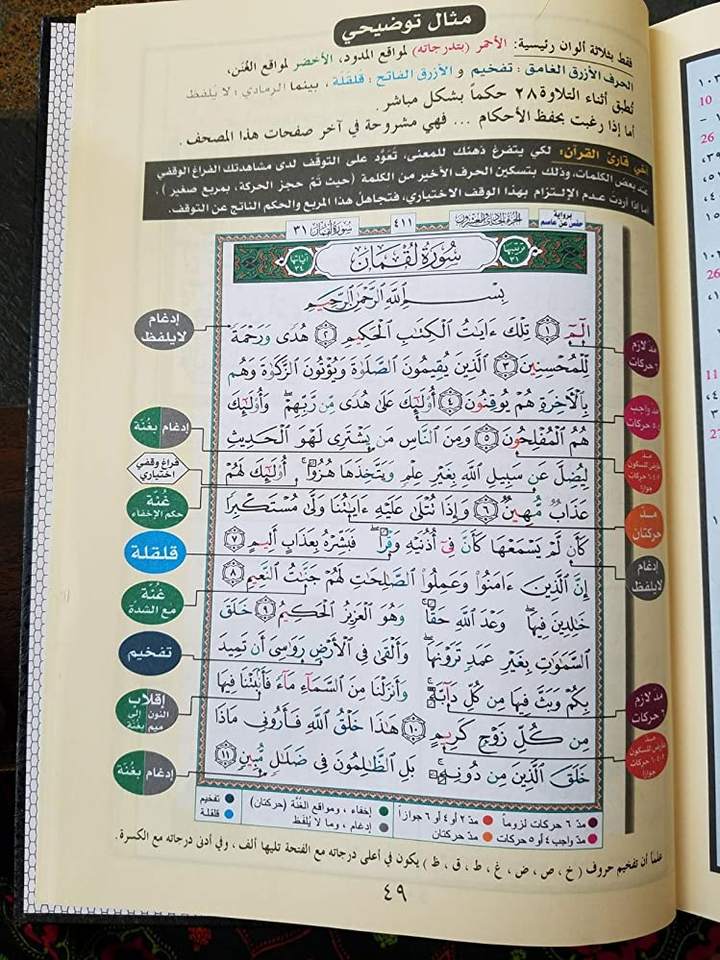 مثال توضيحي
فقط بثلاثة ألوان رئيسية: الأحمر (بتدرجاته) لمواقع المدود، الأخضر لمواقع الغُنَن،
الحرف الأزرق الغامق : تفخيم و الأزرق الفاتح : قلقلة ، بينما الرمادي : لا يُلفظ
تُطبق أثناء التلاوة ٢٨ حكماً بشكل مباشر .
أما إذا رغبت بحفظ الأحكام ... فهي مشروحة في آخر صفحات هذا المصحف.
أخي قارئ القرآن: لكي يتفرغ ذهنك للمعنى، تَعَوَّد على التوقف لدى مشاهدتك الفراغ الوقفي
عند بعض الكلمات، وذلك بتسكين الحرف الأخير من الكلمة (حيث تَمَّ حجز الحركة، بمربع صغير) .
أما إذا أردت عدم الإلتزام بهذا الوقف الاختياري، فتجاهل هذا المربع والحكم الناتج عن التوقف.
برواية حفص عن عاصم
الجزء الحادي والعشرون
٤١١
سورة لقمان ٣١
ترتيبها ٣١
سُورَةُ لُقْمَان
آياتها ٣٤
بِسْمِ اللَّهِ الرَّحْمَٰنِ الرَّحِيمِ
الٓمٓ ١ تِلْكَ ءَايَٰتُ الْكِتَٰبِ الْحَكِيمِ ٢ هُدًى وَرَحْمَةً
لِّلْمُحْسِنِينَ ٣ الَّذِينَ يُقِيمُونَ الصَّلَوٰةَ وَيُؤْتُونَ الزَّكَوٰةَ وَهُم
بِالْءَاخِرَةِ هُمْ يُوقِنُونَ ٤ أُو۟لَٰٓئِكَ عَلَىٰ هُدًى مِّن رَّبِّهِمْ وَأُو۟لَٰٓئِكَ
هُمُ الْمُفْلِحُونَ ٥ وَمِنَ النَّاسِ مَن يَشْتَرِى لَهْوَ الْحَدِيثِ
لِيُضِلَّ عَن سَبِيلِ اللَّهِ بِغَيْرِ عِلْمٍ وَيَتَّخِذَهَا هُزُوًا أُو۟لَٰٓئِكَ لَهُمْ
عَذَابٌ مُّهِينٌ ٦ وَإِذَا تُتْلَىٰ عَلَيْهِ ءَايَٰتُنَا وَلَّىٰ مُسْتَكْبِرًا
كَأَن لَّمْ يَسْمَعْهَا كَأَنَّ فِىٓ أُذُنَيْهِ وَقْرًا فَبَشِّرْهُ بِعَذَابٍ أَلِيمٍ ٧
إِنَّ الَّذِينَ ءَامَنُوا۟ وَعَمِلُوا۟ الصَّٰلِحَٰتِ لَهُمْ جَنَّٰتُ النَّعِيمِ ٨
خَٰلِدِينَ فِيهَا وَعْدَ اللَّهِ حَقًّا وَهُوَ الْعَزِيزُ الْحَكِيمُ ٩ خَلَقَ
السَّمَٰوَٰتِ بِغَيْرِ عَمَدٍ تَرَوْنَهَا وَأَلْقَىٰ فِى الْأَرْضِ رَوَٰسِىَ أَن تَمِيدَ
بِكُمْ وَبَثَّ فِيهَا مِن كُلِّ دَآبَّةٍ وَأَنزَلْنَا مِنَ السَّمَآءِ مَآءً فَأَنۢبَتْنَا فِيهَا
مِن كُلِّ زَوْجٍ كَرِيمٍ ١٠ هَٰذَا خَلْقُ اللَّهِ فَأَرُونِى مَاذَا
خَلَقَ الَّذِينَ مِن دُونِهِ بَلِ الظَّٰلِمُونَ فِى ضَلَٰلٍ مُّبِينٍ ١١
مدّ لازم ٦ حركات
مدّ واجب ٤-٥ حركات
مدّ عارض للسكون ٢-٤-٦ حركات جوازاً
مدّ حركتان
إدغام لايلفظ
مدّ لازم ٦ حركات
مدّ عارض للسكون ٢-٤-٦ حركات جوازاً
إدغام لايلفظ
إدغام بغُنَّة
فراغ وقفي اختياري
غُنَّة حكم الإخفاء
قلقلة
غُنَّة مع الشدّة
تفخيم
إقلاب النون إلى ميم بغُنَّة
إدغام بغُنَّة
مدّ ٦ حركات لزوماً
مدّ ٢ أو ٤ أو ٦ جوازاً
إخفاء ، ومواقع الغُنَّة (حركتان)
تفخيم
مدّ واجب ٤ أو ٥ حركات
مدّ حركتان
إدغام ، وما لا يُلفظ
قلقلة
علماً أن تفخيم حروف ( خ ، ص ، ض ، غ ، ط ، ق ، ظ ) يكون في أعلى درجاته مع الفتحة تليها ألف ، وفي أدنى درجاته مع الكسرة .
٤٩